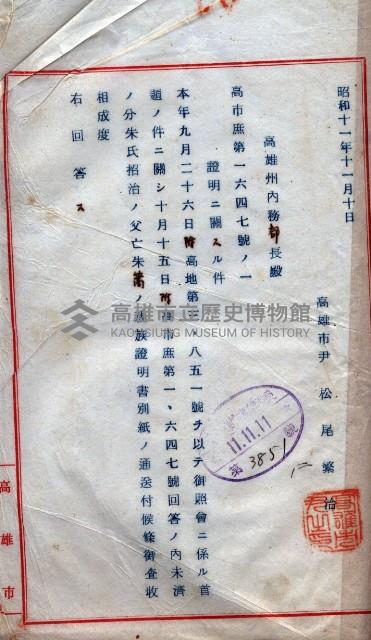 昭和十一年十一月十日
高雄市尹 松尾繁治
高雄州內務部長殿
高市庶第一六四七號ノ一
證明ニ關スル件
本年九月二十六日附高地第三八五一號ヲ以テ御照會ニ係ル首
題ノ件ニ關シ十月十五日附高市庶第一、六四七號回答ノ內未濟
ノ分朱氏招治ノ父亡朱ノ族證明書別紙ノ通送付候條御查收
相成度
右回答ス
11.11.11
第 3851 號
高雄市
高雄市立歷史博物館
KAOHSIUNG MUSEUM OF HISTORY